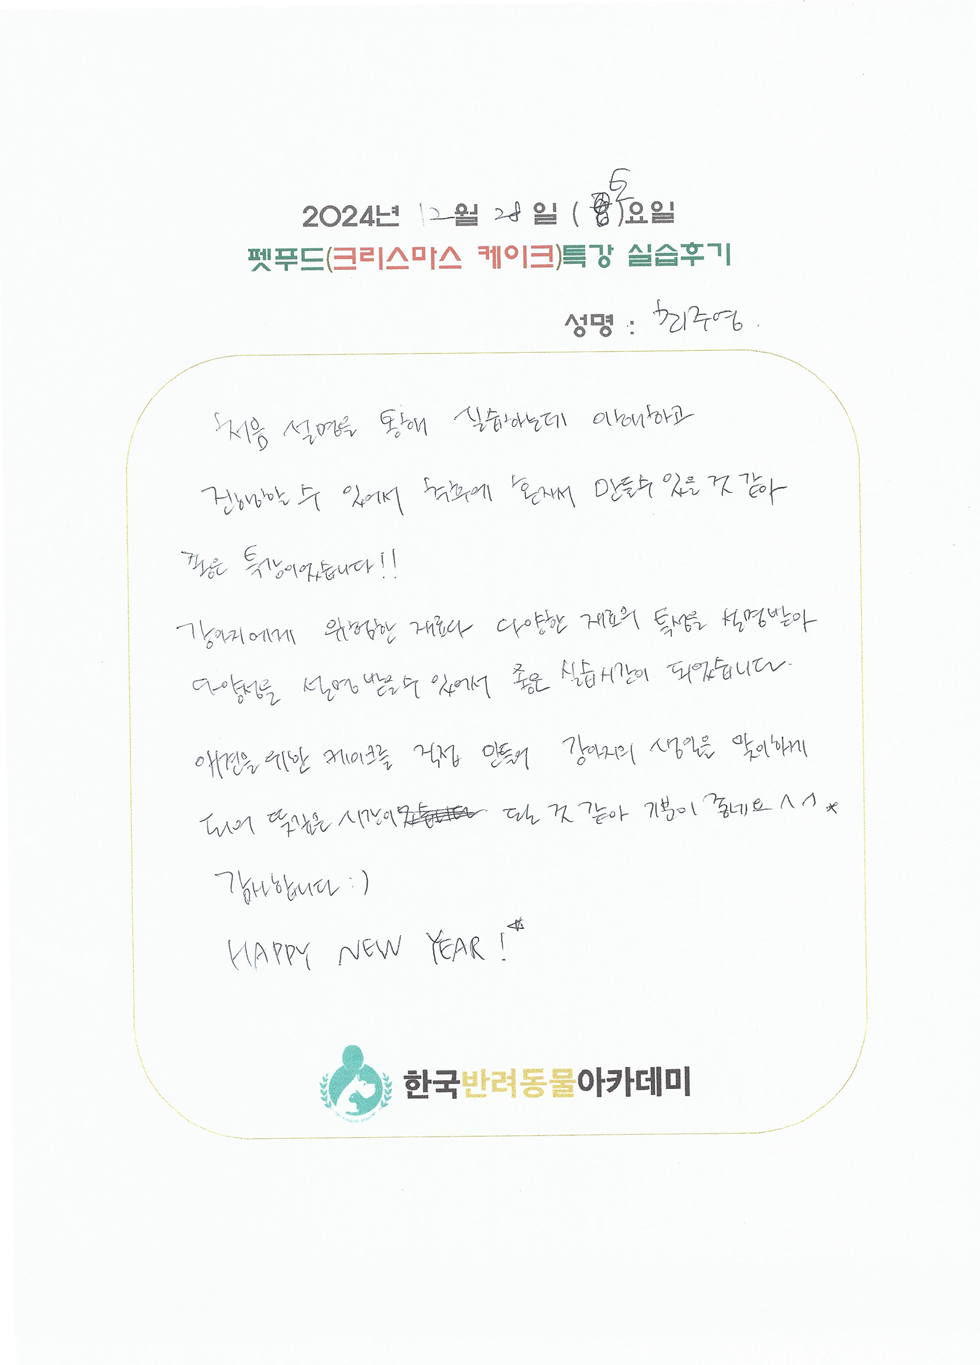 2024년 12월 28일 (토)요일
펫푸드(크리스마스 케이크)특강 실습후기
성명 : 최주영.
처음 설명을 통해 실습하는데 이해하고
진행할 수 있어서 추후에 혼자서 만들수 있을 것 같아
좋은 특강이었습니다!!
강아지에게 위험한 재료나 다양한 재료의 특성을 설명받아
다양성을 설명 받을 수 있어서 좋은 실습시간이 되었습니다.
애견을 위한 케이크를 직접 만들어 강아지의 생일을 맞이하게
되어 뜻깊은 시간이 될 것 같아 기분이 좋네요 ^^*
감사합니다 :)
HAPPY NEW YEAR!
한국반려동물아카데미